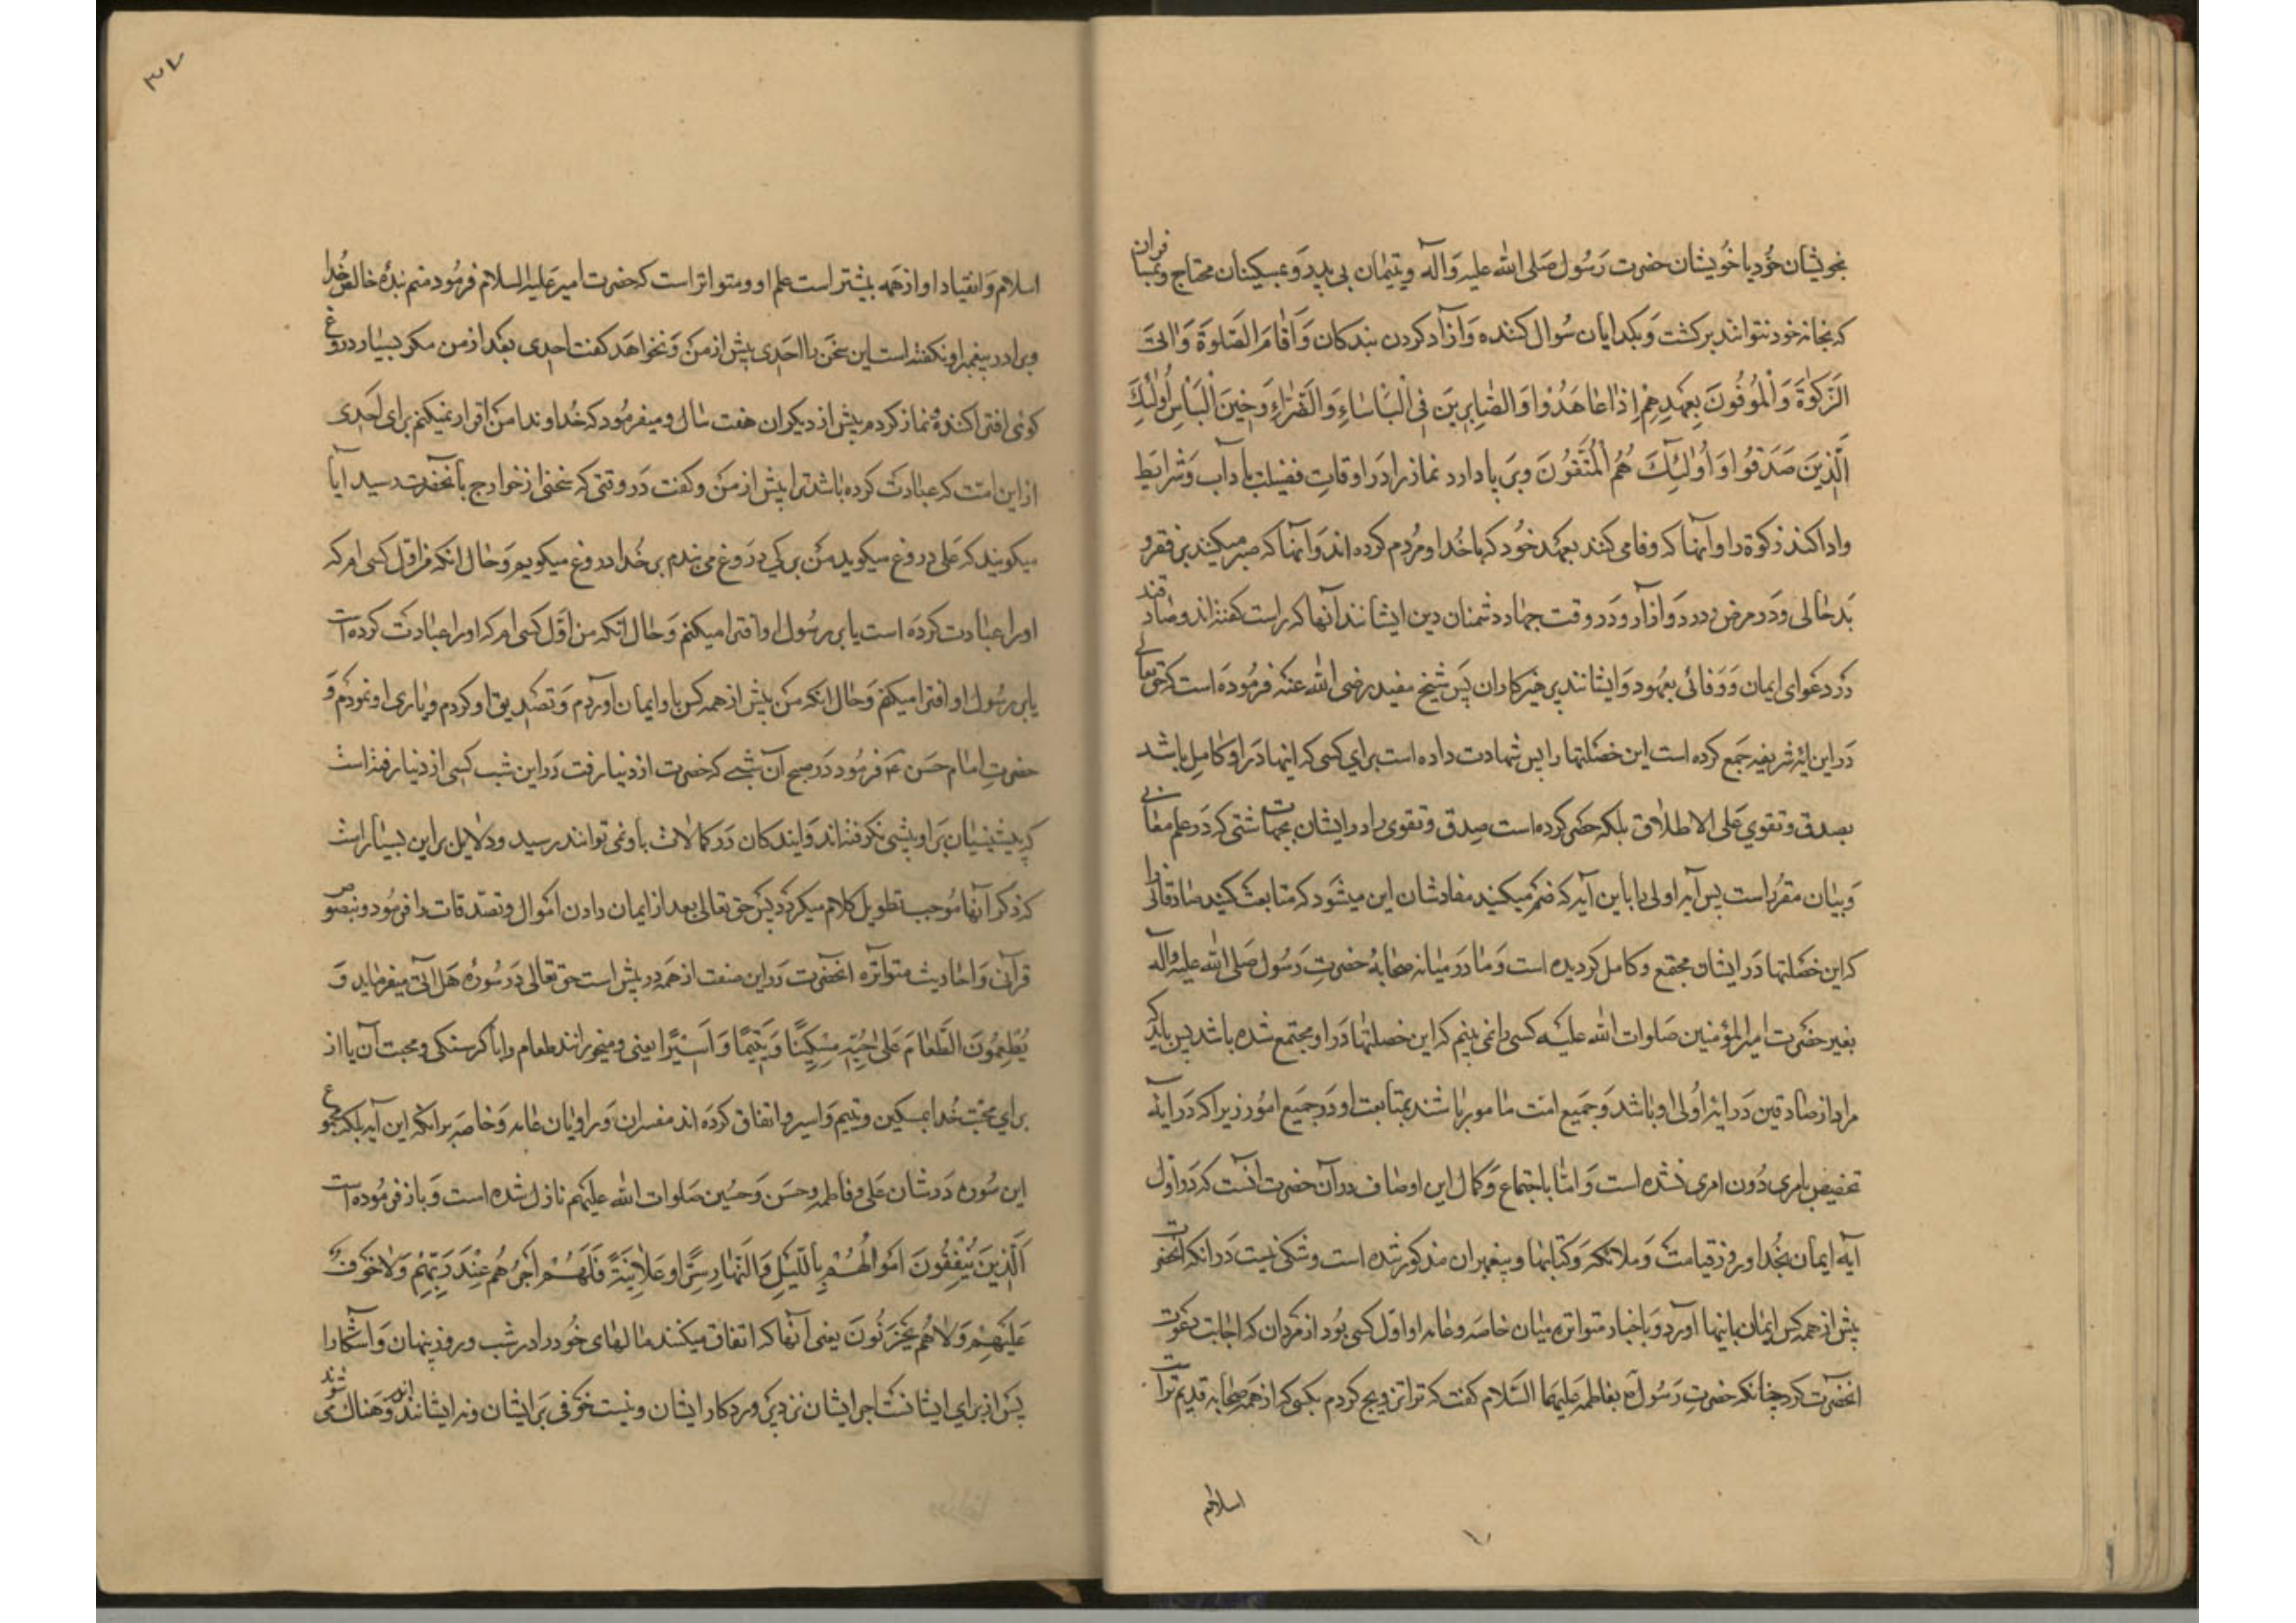 بخویشان خود یا خویشان حضرت رسول صلی الله علیه وآله ویتیمان بی پدر وبمسکینان محتاج وبمسافران
که بخانه خود نتوانند برکشت وبکدایان سؤال کننده وآزاد کردن بندکان وَاَقٰامَ الصَّلٰوةَ وَاٰتَی
الزَّکٰوةَ وَالْمُوفُونَ بِعَهْدِهِمْ اِذٰا عٰاهَدُوا وَالصّٰابِرِینَ فِی الْبَأْسٰاءِ وَالضَّرّٰاءِ وَحِینَ الْبَأْسِ اُولٰئِكَ
الَّذِینَ صَدَقُوا وَاُولٰئِكَ هُمُ الْمُتَّقُونَ وبر پا دارد نماز را در اوقات فضیلت بآداب وشرایط
وادا کند زکوة را وآنها که وفا می کنند بعهد خود که با خدا ومردم کرده اند وآنها که صبر میکنند بر فقر و
بدحالی ودر مرض ودرد وآزار ودر وقت جهاد دشمنان دین ایشانند آنها که راست کفته اند وصادقند
در دعوای ایمان ووفائی بعهود وایشانند پرهیزکاران پس شیخ مفید رضی الله عنه فرموده است که حق تعالی
در این آیه شریفه جمع کرده است این خصلتها را پس شهادت داده است برای کسی که اینها در او کامل باشد
بصدق وتقوی علی الاطلاق بلکه حصر کرده است صدق وتقوی را در ایشان بجهات شتی که در علم معانی
وبیان مقرر است پس آیه اولی را با این آیه که ضم میکنید مفادشان این میشود که متابعت کنید صادقانی را
که این خصلتها در ایشان مجتمع وکامل کردیده است وما در میانه صحابهٔ حضرت رسول صلی الله علیه وآله
بغیر حضرت امیرالمؤمنین صلوات الله علیه کسی را نمی بینم که این خصلتها در او مجتمع شده باشد پس باید که
مراد از صادقین در آیه اولی او باشد وجمیع امت مامور باشند بمتابعت او در جمیع امور زیرا که در آیه
تخصیص بامری دون امری نشده است واما باجتماع وکمال این اوصاف در آن حضرت آنست که در اول
آیه ایمان بخدا وروز قیامت وملائکه وکتابها وپیغمبران مذکور شده است وشکی نیست در انکه آنحضرت
پیش از همه کس ایمان باینها آورد وباخبار متواتره میان خاصه وعامه او اول کسی بود از مردان که اجابت دعوت
انحضرت کرد چنانکه حضرت رسول ص بفاطمه علیهما السلام کفت که ترا تزویج کردم بکسی که از همه صحابه قدیم تر است
اسلام
۳۷
اسلام وانقیاد او از همه بیشتر است علم او ومتواتر است که حضرت امیر علیه السلام فرمود منم بندهٔ خالص خدا
وبرادر پیغمبر او نکفته است این سخن را احدی پیش از من ونخواهد کفت احدی بعد از من مکر بسیار دروغ
کوئی افترا کننده نماز کردم پیش از دیکران هفت سال ومیفرمود که خداوندا من اقرار نمیکنم برای احدی
از این امت که عبادت کرده باشد ترا پیش از من وکفت در وقتی که سخنی از خوارج بآنحضرت رسید آیا
میکویند که علی دروغ میکوید من بر کی دروغ می بندم بر خدا دروغ میکویم وحال انکه من اول کسی ام که
اورا عبادت کرده است یا بر رسول او افترا میکنم وحال انکه من اول کسی ام که اورا عبادت کرده است
یا بر رسول او افترا میکنم وحال انکه من پیش از همه کس باو ایمان آوردم وتصدیق او کردم ویاری او نمودم و
حضرت امام حسن ع فرمود در صبح آن شبی که حضرت از دنیا رفت در این شب کسی از دنیا رفته است
که پیشینیان بر او پیشی نکرفته اند وآیندکان در کمالات باو نمی توانند رسید ودلایل بر این بسیار است
که ذکر آنها موجب تطویل کلام میکردد پس حق تعالی بعد از ایمان دادن اموال وتصدقات را فرمود وبنصوص
قرآن واحادیث متواتره انحضرت در این صنعت از همه در پیش است حق تعالی در سوره هل اتی میفرماید وَ
یُطْعِمُونَ الطَّعٰامَ عَلٰی حُبِّهِ مِسْکِینًا وَیَتِیمًا وَاَسِیرًا یعنی ومیخورانند طعام را با کرسنکی ومحبت آن یا از
برای محبت خدا بمسکین ویتیم واسیر واتفاق کرده اند مفسران وراویان عامه وخاصه بر انکه این آیه بلکه مجموع
این سوره در شان علی وفاطمه وحسن وحسین صلوات الله علیهم نازل شده است وباز فرموده است
اَلَّذِینَ یُنْفِقُونَ اَمْوٰالَهُمْ بِاللَّیْلِ وَالنَّهٰارِ سِرًّا وعَلٰانِیَةً فَلَهُمْ اَجْرُهُمْ عِنْدَ رَبِّهِمْ وَلٰا خَوْفٌ
عَلَیْهِمْ وَلٰا هُمْ یَحْزَنُونَ یعنی آنها که انفاق میکنند مالهای خود را در شب وروز پنهان وآشکارا
پس از برای ایشانست اجر ایشان نزد پروردکار ایشان ونیست خوفی بر ایشان ونه ایشان اندوهناک می شوند